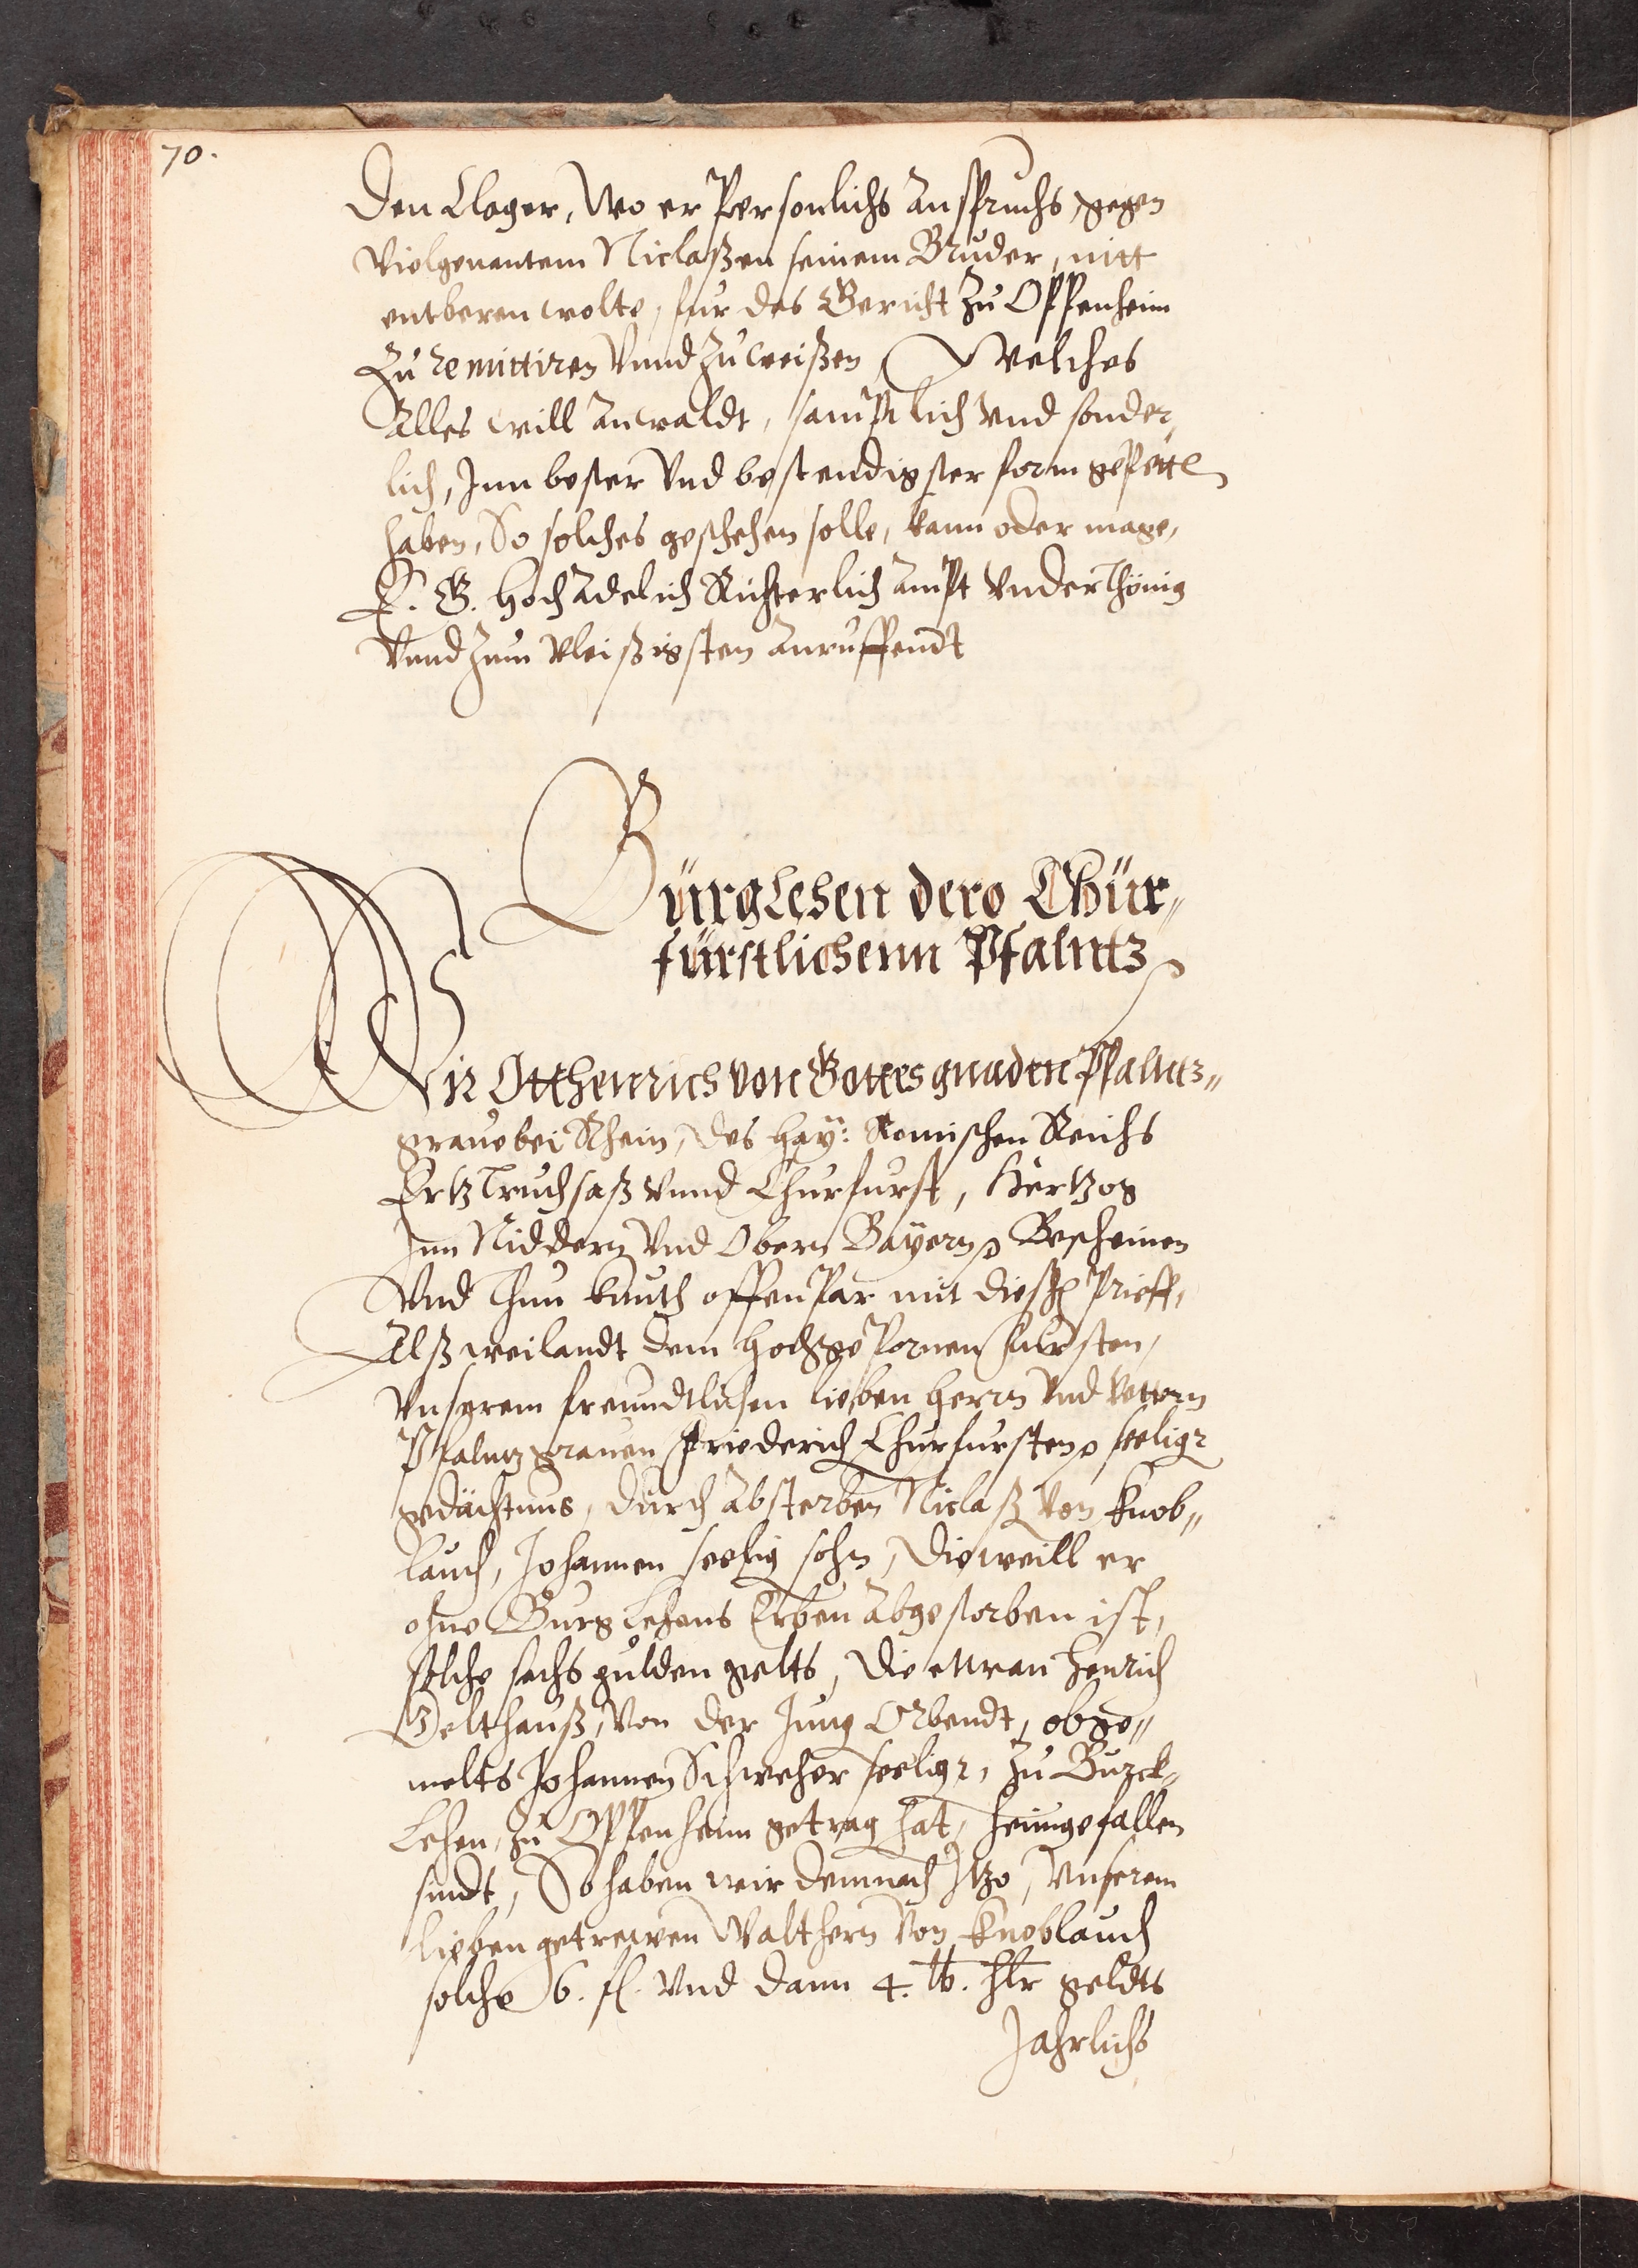 70.
Den Clager, Wo er Personlichs anspruchs gegen
Vielgenantem Niclaßen seinem Bruder, nitt
entberen wolte, fur das Gericht zu Oppenheim
Zu remittiren Vnnd zu weißen, Welches
Alles will anwaldt, samptlich Vnd sonder,
lich, Inn bester Vnd bestendigster form gepettē
haben, So solches geschehen solle, kann oder mage,
E. G. Hochadelich Richterlich ampt Vnderthönig
Vnnd zum Vleißigsten anruffendt
Bürglehen dero Chür„
fürstlichenn Pfalntz
Wir Otthenrich von Gottes gnaden Pfalntz„
graue bei Rhein, des Hay: Romischen Reichs
Ertztruchsaß Vnnd Churfurst, Hertzog
Inn Niddern Vnd Obern Bayern Bescheinen
Vnd Thun kunth offenpar mit diesē Prieff,
Alß weilandt dem Hochgepornen fursten,
Vnserem freundtlichen lieben Herrn Vnd Vettern
Pfalntzgrauen Friederich Churfursten seeligr
gedächtnus, durch absterben Niclaß Von Knob„
lauch, Johannen seelig sohn, Dieweill er
ohne Burglehens Erben abgestorben ist,
solche sechs gulden gelts, Die ettwan Henrich
Gelthauß, Von der Jung Abendt, obge„
melts Johannen Schweher seeligr, zu Burck„
Lehen, zu Oppenheim getrag hat, heimgefallen
sindt, So haben wir demnach Itzo, Vnserem
lieben getrewen Walthern Von Knoblauch
solche 6. fl. Vnd dann 4. lb. Hlr geldts
Jahrlichs